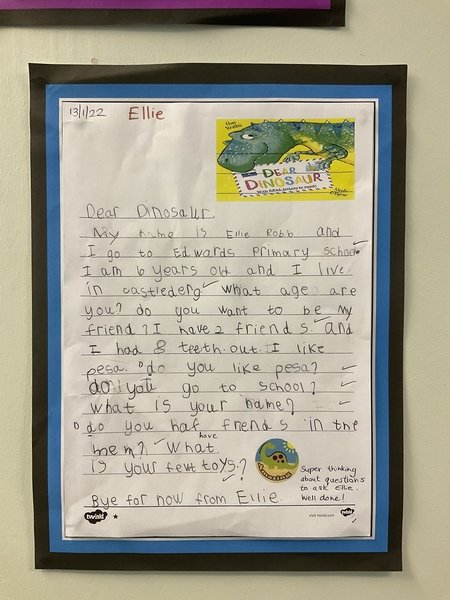 13/1/22 Ellie
DEAR
DINOSAUR
Dear Dinosaur
My name is Ellie Robb and
I go to Edwards Primary school
I am 6 years old and I live
in castlederg what age are
you? do you want to be my
friend? I have 2 friends and
I had 8 teeth out I like
pesa. do you like pesa?
don you go to school?
what is your name?
D do you haf friends in the
have
mem? What
is your fewt toys.?
Super thinking
about questions
to ask Ellie.
Well done!
Bye for now from Ellie.
twinkl
visit twinkl.com
twinkl